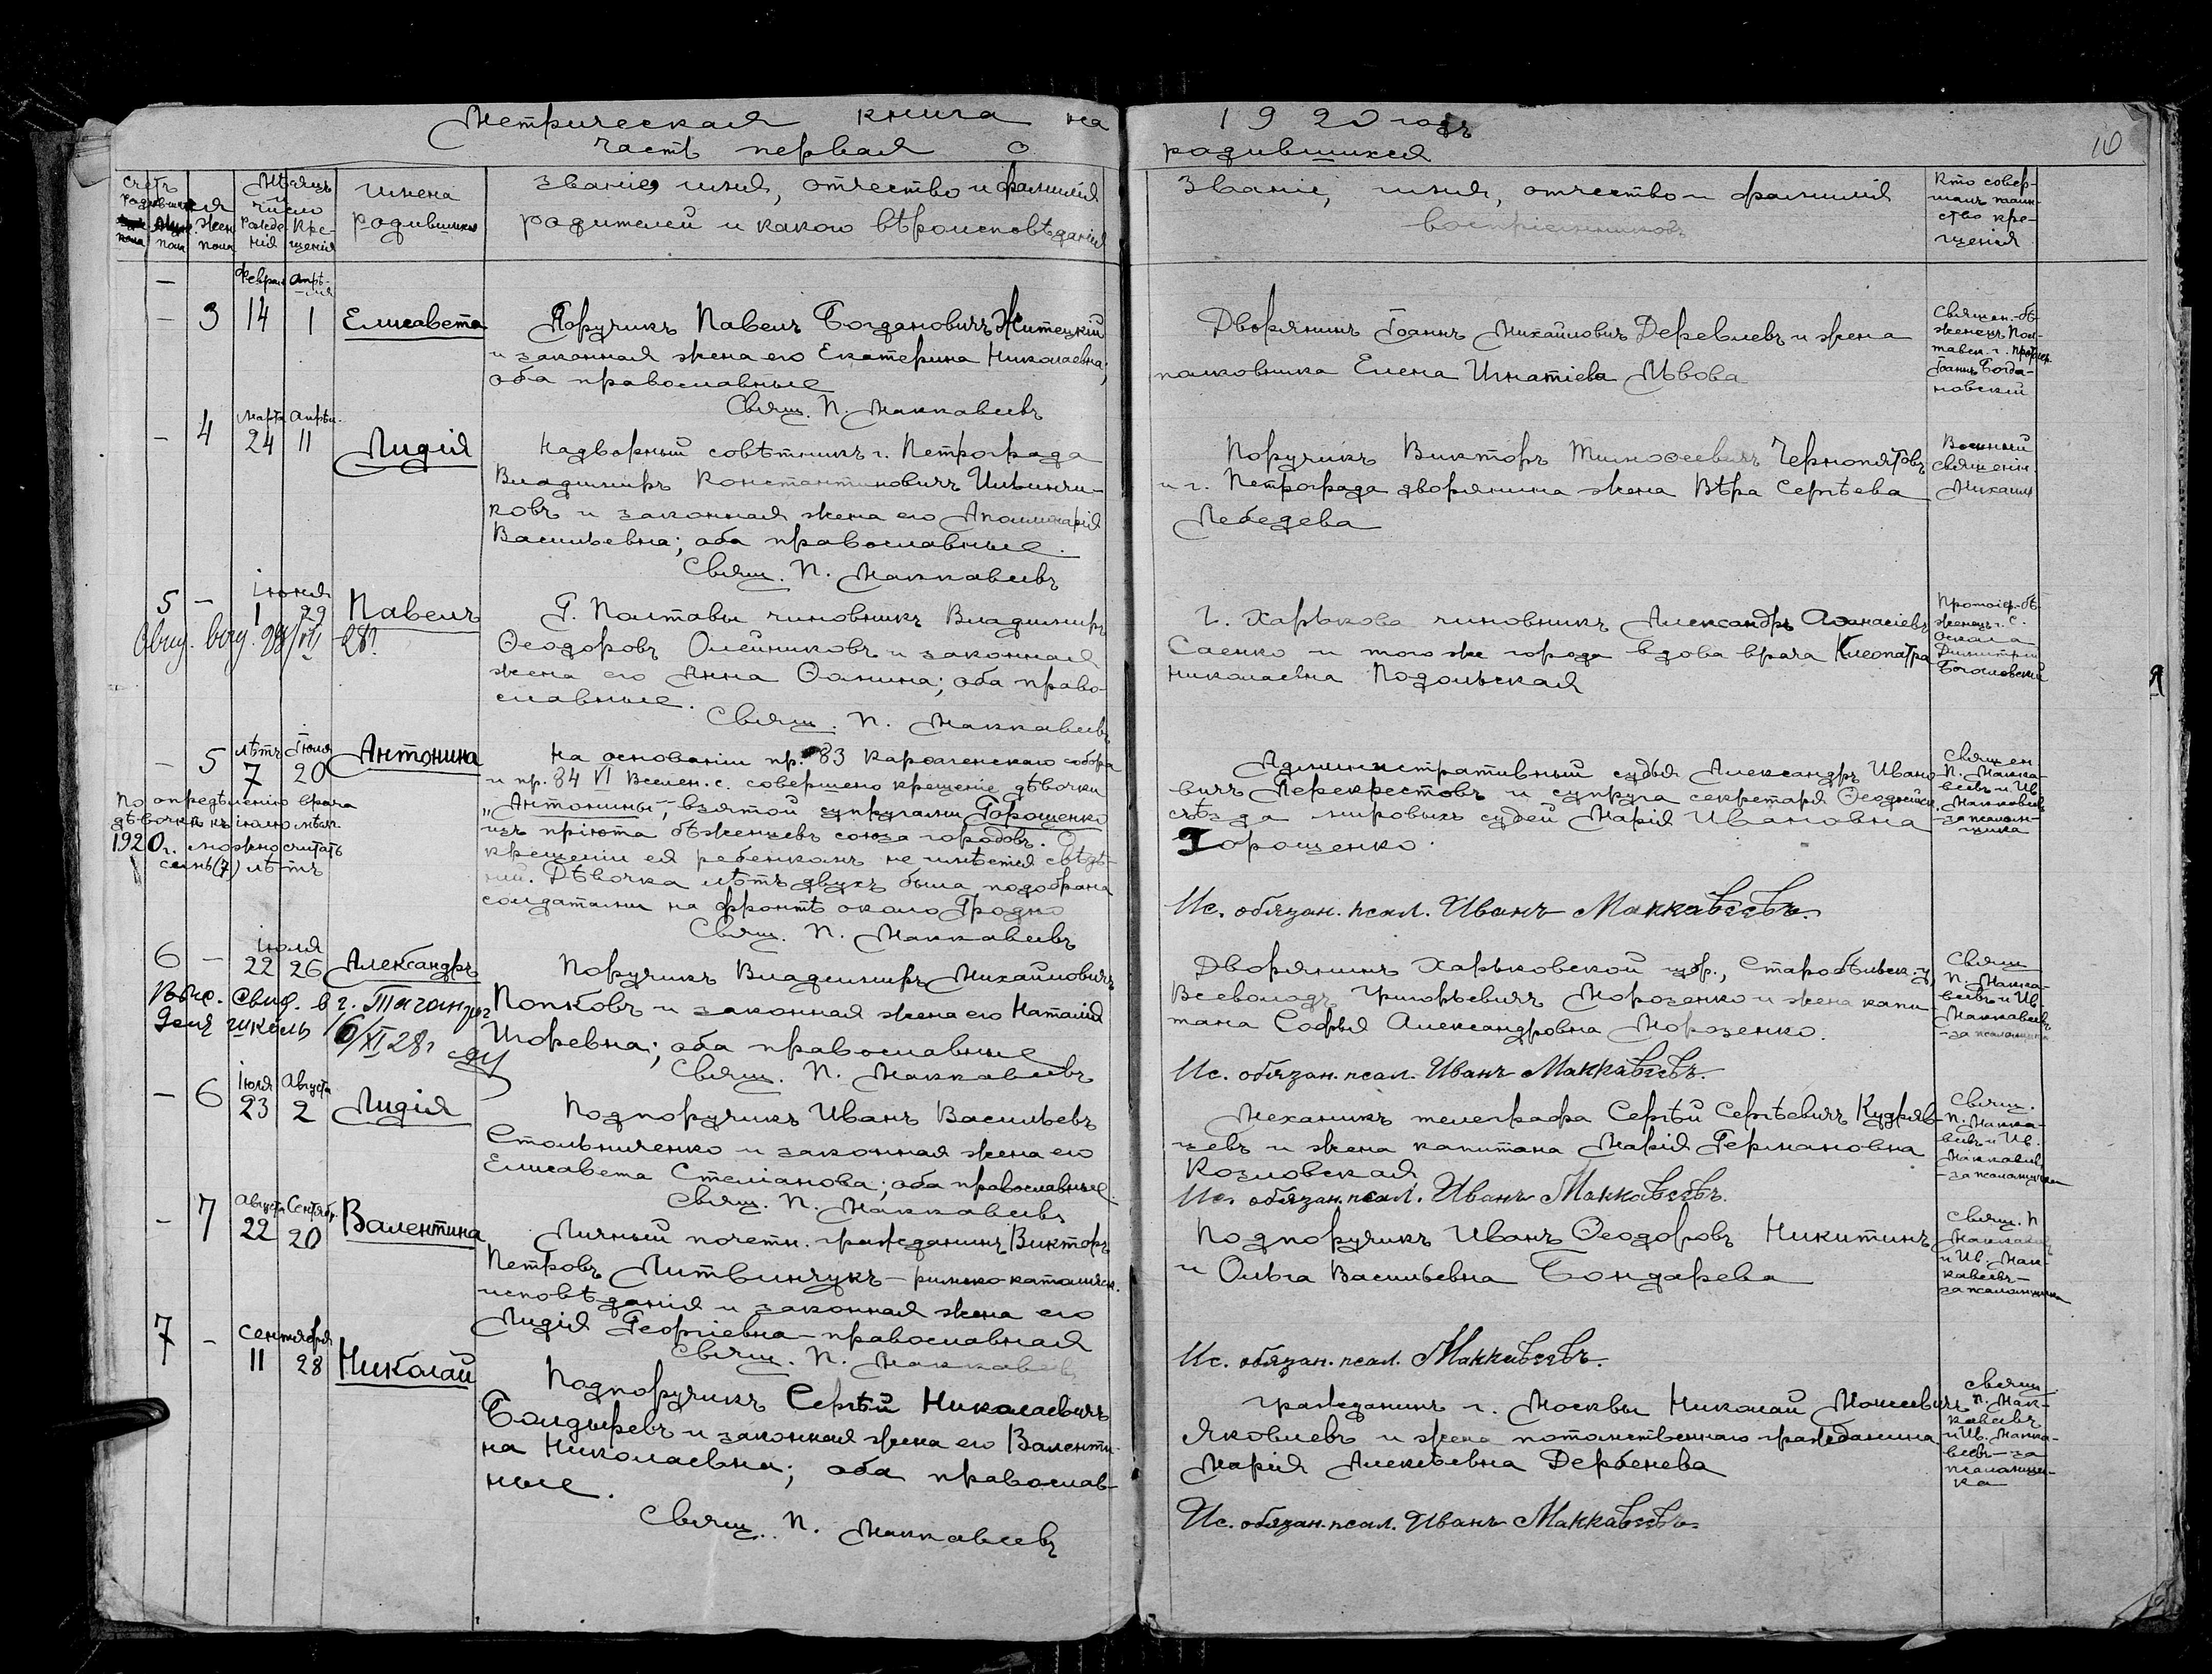 Метрическая книга на 1920 годъ
часть первая о родившихся
10
Счетъ родившихся
Муж. пола
Жен. пола
Мѣсяцъ и число
Рожденія
Крещенія
Имена родившихся
Званіе, имя, отчество и фамилія
родителей и какого вѣроисповѣданія
Званіе, имя, отчество и фамилія
воспріемниковъ
Кто совер-
шалъ таин-
ство кре-
щенія
Феврал Апрѣ-
ля
— 3 14 1 Елисавета
Поручикъ Павелъ Богдановичъ Житецкий
и законная жена его Екатерина Николаевна;
оба православные
Свящ. П. Маккавеевъ
Дворянинъ Іоаннъ Михайловичъ Деревлевъ и жена
полковника Елена Игнатіева Львова
Священ.-бѣ-
женецъ Пол-
тавск. г.
Іоаннъ Богда-
новский
Марта Апрѣл.
— 4 24 11 Лидія
Надворный совѣтникъ г. Петрограда
Владимиръ Константиновичъ Ильинчи-
ковъ и законная жена его Аполлинарія
Васильевна; оба православные.
Свящ. П. Маккавеевъ
Поручикъ Викторъ Тимоѳеевичъ Чернопятовъ
и г. Петрограда дворянина жена Вѣра Сергѣева
Лебедева
Военный
священн.
Михаил
Іюня
5 — 1 29 Павелъ
28?
Г. Полтавы чиновникъ Владимиръ
Ѳеодоровъ Олейниковъ и законная
жена его Анна Ѳомина; оба право-
славные.
Свящ. П. Маккавеевъ
Г. Харькова чиновникъ Александръ Аѳанасіевъ
Саенко и того же города вдова врача Клеопатра
Николаевна Подольская
Протоіер.-бѣ-
женецъ г. С.
Оскола
Димитрий
Богословский
лѣтъ Іюля
— 5 7 20 Антонина
По опредѣленію врача
дѣвочкѣ къ іюлю мѣс.
1920 г. можно считать
семь (7) лѣтъ
На основаніи пр. 83 Карѳагенскаго собора
и пр. 84 VI Вселен. с. совершено крещеніе дѣвочки
„Антонины", взятой супругами Горощенко
изъ пріюта бѣженцевъ союза городовъ. О
крещеніи ея ребенкомъ не имѣется свѣдѣ-
ній. Дѣвочка лѣтъ двухъ была подобрана
солдатами на фронтѣ около Гродно
Свящ. П. Маккавеевъ
Административный судья Александръ Ивано-
вичъ Перекрестовъ и супруга секретаря Ѳеодосійск.
съѣзда мировыхъ судей Марія Ивановна
Горощенко.
Ис. обязан. псал. Иванъ Маккавѣевъ.
Священ
П. Макка-
веевъ и Ив.
Маккавеевъ
— за псалом-
щика
Іюля
6 — 22 26 Александръ
Выс. свид. в г. Таганрог
для школы 16/XI 28 г
Поручикъ Владимиръ Михайловичъ
Попковъ и законная жена его Наталія
Игоревна; оба православные
Свящ. П. Маккавеевъ
Дворянинъ Харьковской губ., Старобѣльск. у,
Всеволодъ Григорьевичъ Морозенко и жена капи
тана Софья Александровна Морозенко.
Ис. обязан. псал. Иванъ Маккавѣевъ.
Свящ
П. Макка-
веевъ и Ив.
Маккавеевъ
— за псаломщика
Іюля Августа
— 6 23 2 Лидія
Подпоручикъ Иванъ Васильевъ
Стольниченко и законная жена его
Елисавета Стеліанова; оба православные.
Свящ. П. Маккавеевъ
Механикъ телеграфа Сергѣй Сергѣевичъ Кудряв-
цевъ и жена капитана Марія Германовна
Козловская
Ис. обязан. псал. Иванъ Маккавѣевъ.
Свящ.
П. Макка-
веевъ и Ив.
Маккавеевъ
— за псаломщика
Августа Сентябр.
— 7 22 20 Валентина
Личный почетн. гражданинъ Викторъ
Петровъ Литвинчукъ — римско-католическ.
исповѣданія и законная жена его
Лидія Георгіевна — православная
Свящ. П. Маккавеевъ
Подпоручикъ Иванъ Ѳеодоровъ Никитинъ
и Ольга Васильевна Бондарева
Ис. обязан. псал. Маккавѣевъ.
Свящ. П
Маккавеевъ
и Ив. Мак-
кавеевъ —
за псаломщика
Сентября
7 — 11 28 Николай
Подпоручикъ Сергѣй Николаевичъ
Болдыревъ и законная жена его Валенти-
на Николаевна; оба православ-
ные.
Свящ. П. Маккавеевъ
Гражданинъ г. Москвы Николай Моисеевичъ
Яковлевъ и жена потомственнаго гражданина
Марія Алексѣевна Дербенева
Ис. обязан. псал. Иванъ Маккавѣевъ.
Свящ.
П. Мак-
кавеевъ
и Ив. Макка-
веевъ — за
псаломщи-
ка